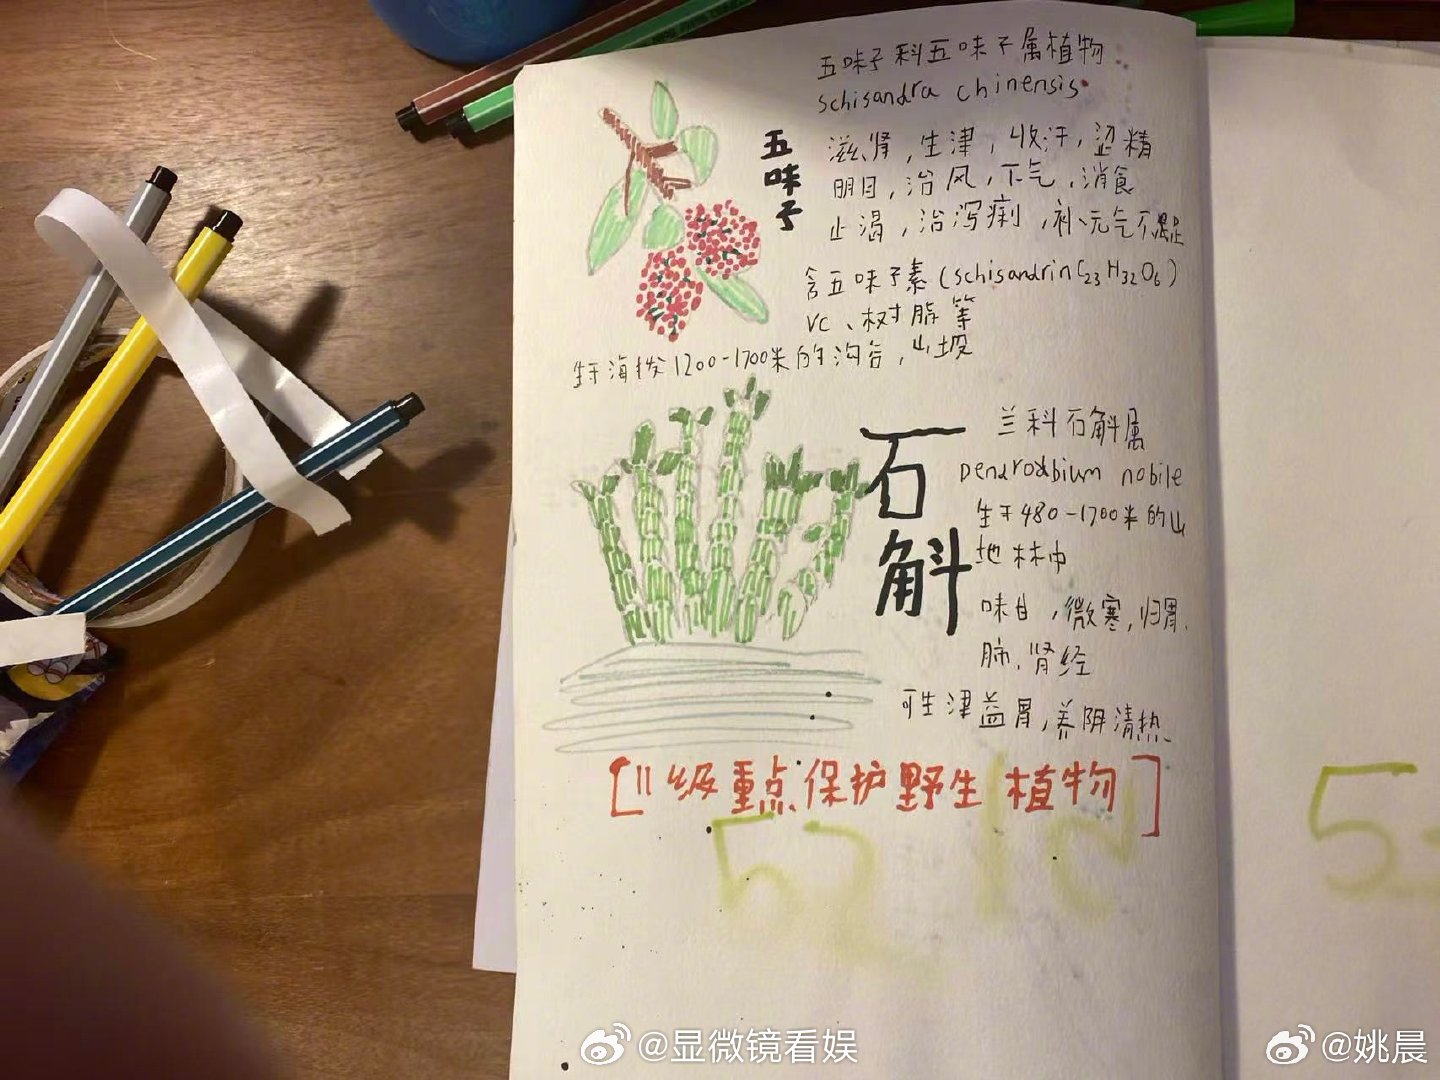 五味子科五味子属植物
schisandra chinensis
五味子
滋肾，生津，收汗，涩精
明目，治风，下气，消食
止渴，治泻痢，补元气不足
含五味子素(schisandrin C23H32O6)
VC、树脂等
生于海拔1200-1700米的沟谷，山坡
石斛
兰科石斛属
nobile
生于480-1700米的山
地林中
味甘，微寒，归胃、
肺、肾经
可生津益胃，养阴清热
[II级重点保护野生植物]
52
@显微镜看娱
@姚晨